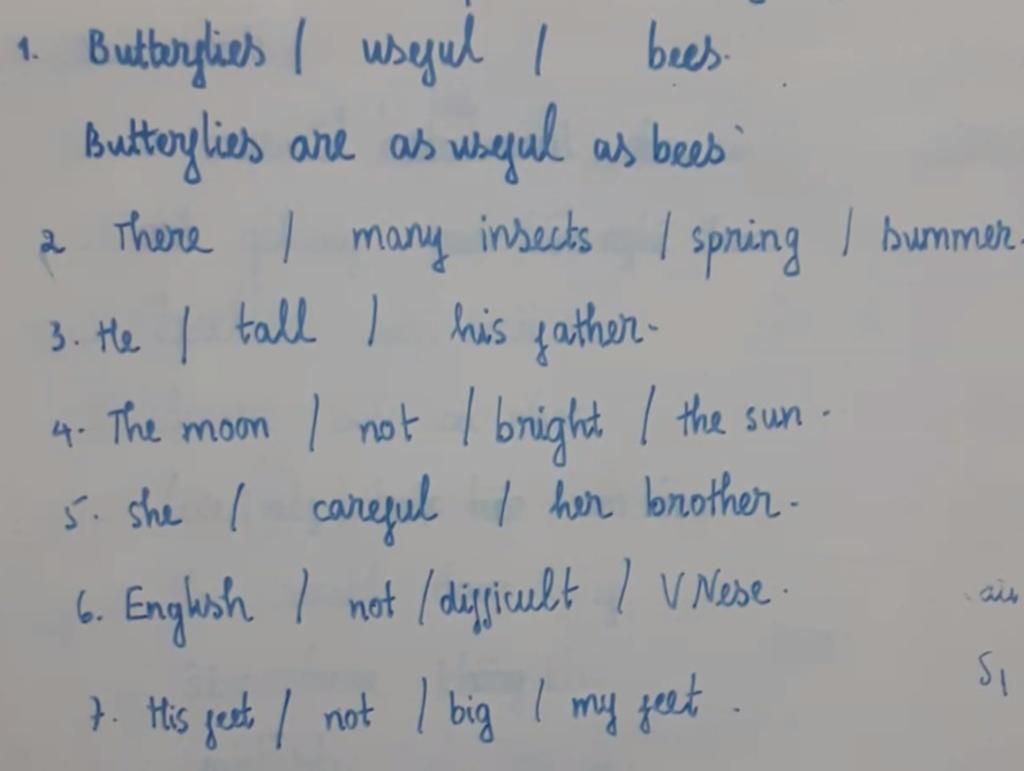 1. Butterflies / useful / bees.
Butterflies are as useful as bees
2 There / many insects / spring / summer.
3. He / tall / his father.
4. The moon / not / bright / the sun.
5. She / careful / her brother.
6. English / not / difficult / VNese.
7. His feet / not / big / my feet.
S1